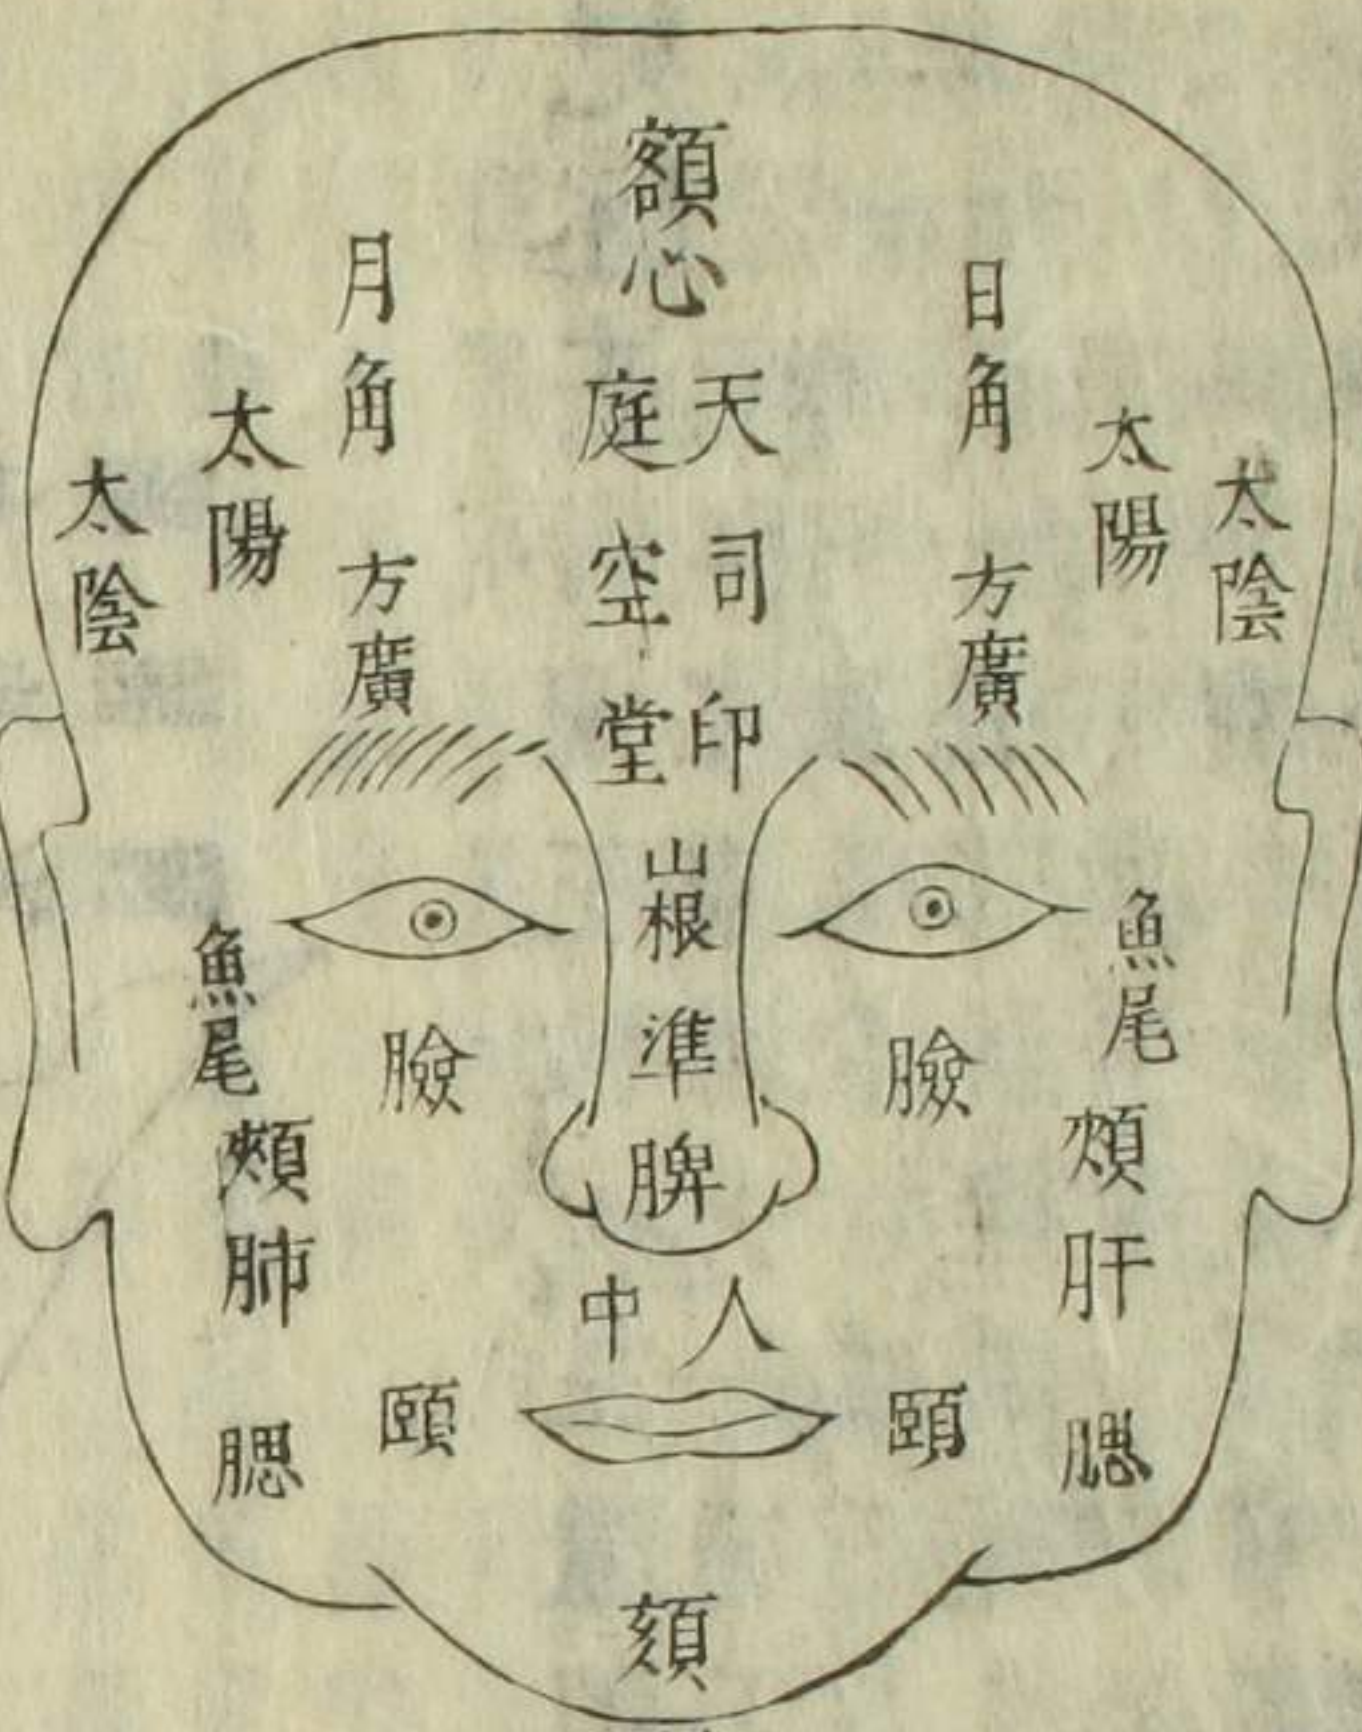 額心
天庭
司空
印堂
山根
準
脾
人中
頦
日角
方廣
太陽
太陰
魚尾
臉
頰肝
頤
腮
月角
方廣
太陽
太陰
魚尾
臉
頰肺
頤
腮